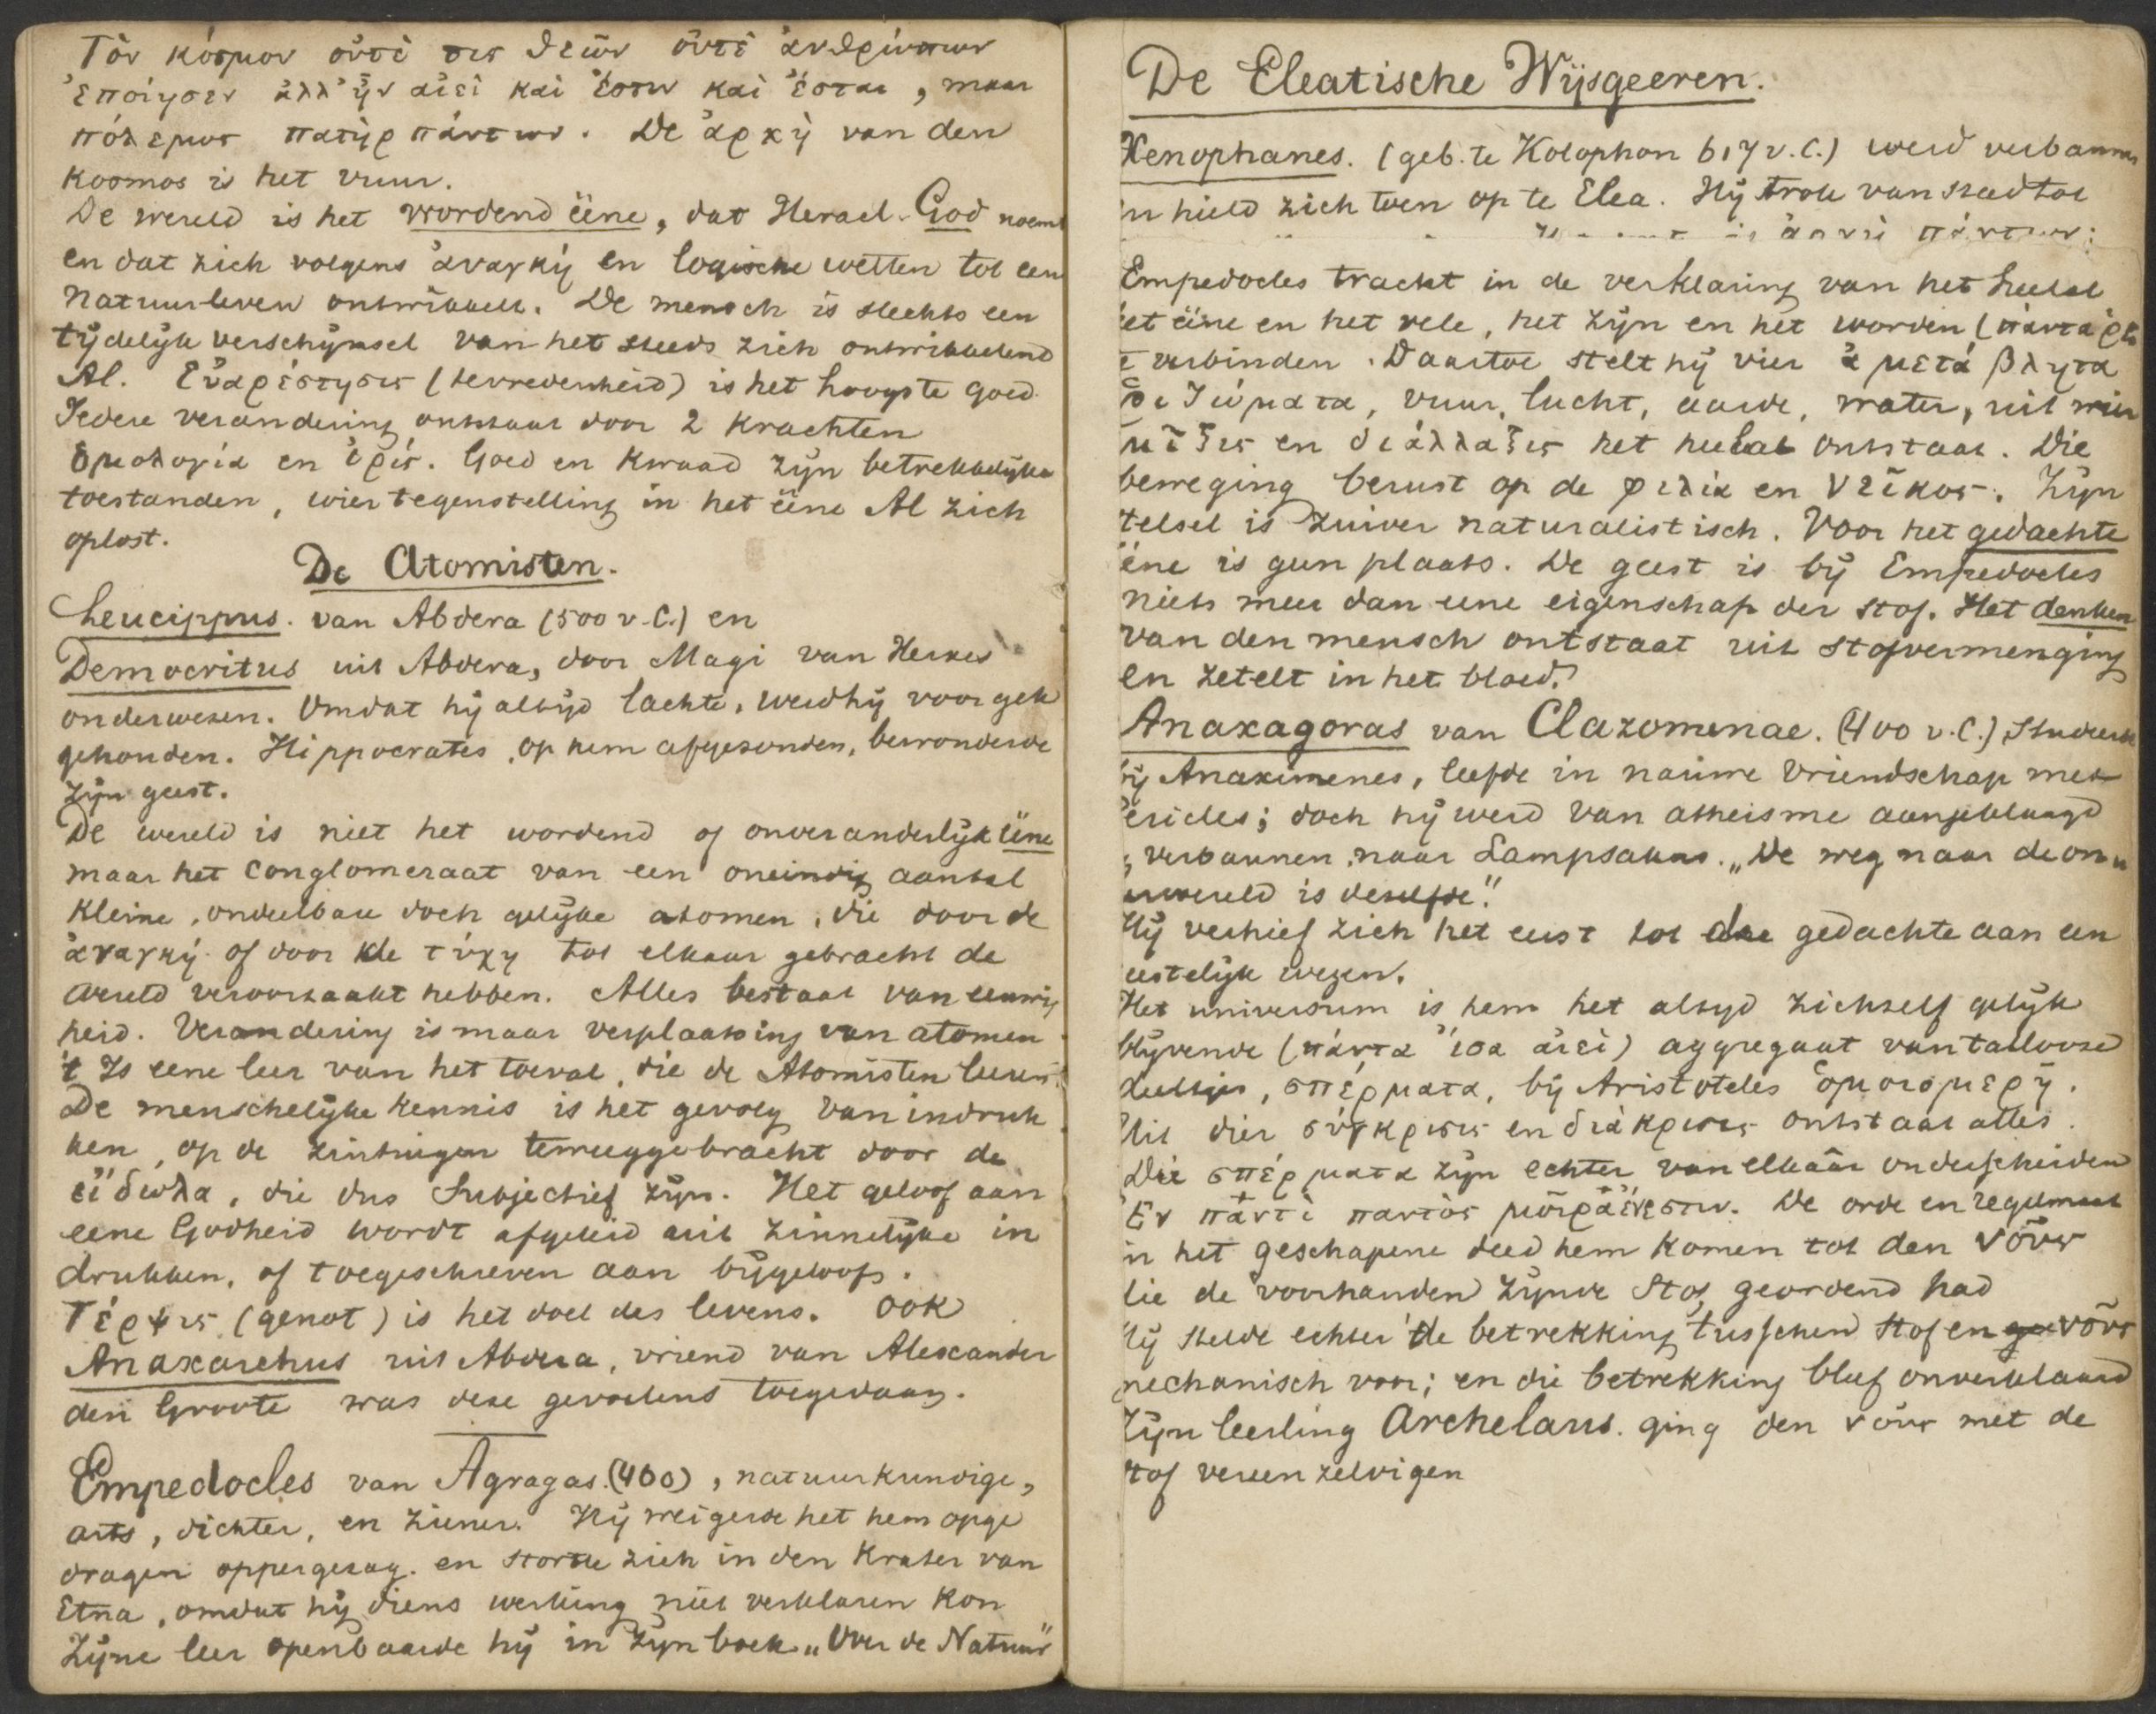 Τὸν κόσμον οὔτὲ τις θεῶν οὔτὲ ἀνθρώπων
ἐποίησεν ἀλλ' ἦν αἰεὶ καὶ ἔστιν καὶ ἔσται, maar
πόλεμος πατὴρ πάντων. De ἀρχὴ van den
Kosmos is het vuur.
De wereld is het wordend ééne, dat Heracl. God noemt
en dat zich volgens ἀναγκή en logische wetten tot een
natuurleven ontwikkelt. De mensch is slechts een
tijdelijk verschijnsel van het steeds zich ontwikkelend
Al. Εὐαρέστησις (tevredenheid) is het hoogste goed.
Iedere verandering ontstaat door 2 krachten
ὁμολογία en ἐρίς. Goed en kwaad zijn betrekkelijke
toestanden, wier tegenstelling in het ééne Al zich
oplost.
De Atomisten.
Leucippus. van Abdera (500 v.C.) en
Democritus uit Abdera, door Magi van Herxes
onderwezen. Omdat hij altijd lachte, werd hij voor gek
gehouden. Hippocrates, op hem afgezonden, bewonderde
zijn geest.
De wereld is niet het wordend of onveranderlijk ééne
maar het conglomeraat van een oneindig aantal
kleine, ondeelbare doch gelijke atomen, die door de
ἀναγκή of door de τύχη tot elkaar gebracht de
wereld veroorzaakt hebben. Alles bestaat van eeuwig
heid. Verandering is maar verplaatsing van atomen.
't Is eene leer van het toeval, die de Atomisten leeren.
De menschelijke kennis is het gevolg van indruk
ken, op de zintuigen teweeggebracht door de
εἴδωλα, die dus subjectief zijn. Het geloof aan
eene Godheid wordt afgeleid uit zinnelijke in
drukken, of toegeschreven aan bijgeloof.
Τέρψις (genot) is het doel des levens. Ook
Anaxarchus uit Abdera, vriend van Alexander
den Groote was deze gevoelens toegedaan.
Empedocles van Agragas. (460), natuurkundige,
arts, dichter, en ziener. Hij weigerde het hem opge
dragen oppergezag. en stortte zich in den krater van
Etna, omdat hij diens werking niet verklaren kon
Zijne leer openbaarde hij in zijn boek „Over de Natuur"
De Eleatische Wijsgeeren.
Xenophanes. (geb. te Kolophon 617 v.C.) werd verbannen
en hield zich toen op te Elea. Hij trok van stad tot
Empedocles tracht in de verklaring van het heelal
et ééne en het vele, het zijn en het worden (πάντα ῥεῖ
te verbinden. Daartoe stelt hij vier ἀ μετά βλητα
ῥιζώματα, vuur, lucht, aarde, water, uit wier
μῖξις en διάλλαξις het heelal ontstaat. Die
beweging berust op de φιλία en νεῖκος. Zijn
telsel is zuiver naturalistisch. Voor het gedachte
ééne is geen plaats. De geest is bij Empedocles
niets meer dan eene eigenschap der stof. Het denken
van den mensch ontstaat uit stofvermenging
en zetelt in het bloed.
Anaxagoras van Clazomenae. (400 v.C.) Studeerde
bij Anaximenes, leefde in nauwe vriendschap met
ericles; doch hij werd van atheisme aangeklaagd
verbannen naar Lampsakus. „De weg naar de on
erwereld is dezelfde."
Hij verhief zich het eerst tot de gedachte aan een
eestelijk wezen.
Het universum is hem het altijd zichzelf gelijk
blijvende (πάντα ἴσα ἀιεὶ) aggregaat van tallooze
deeltjes, σπέρματα, bij Aristoteles ὁμοιομερῆ.
Uit dier σύγκρισις en διάκρισις ontstaat alles.
Die σπέρματα zijn echter van elkaâr onderscheiden
Ἐν πάντὶ παντὸς μοῖρα ἔνεστιν. De orde en regelmaat
in het geschapene deed hem komen tot den νοῦς
die de voorhanden zijnde Stof geordend had
Hij stelde echter de betrekking tusschen stof en νοῦς
mechanisch voor; en die betrekking bleef onverklaard
Zijn leerling Archelaus. ging den νοῦς met de
stof vereenzelvigen